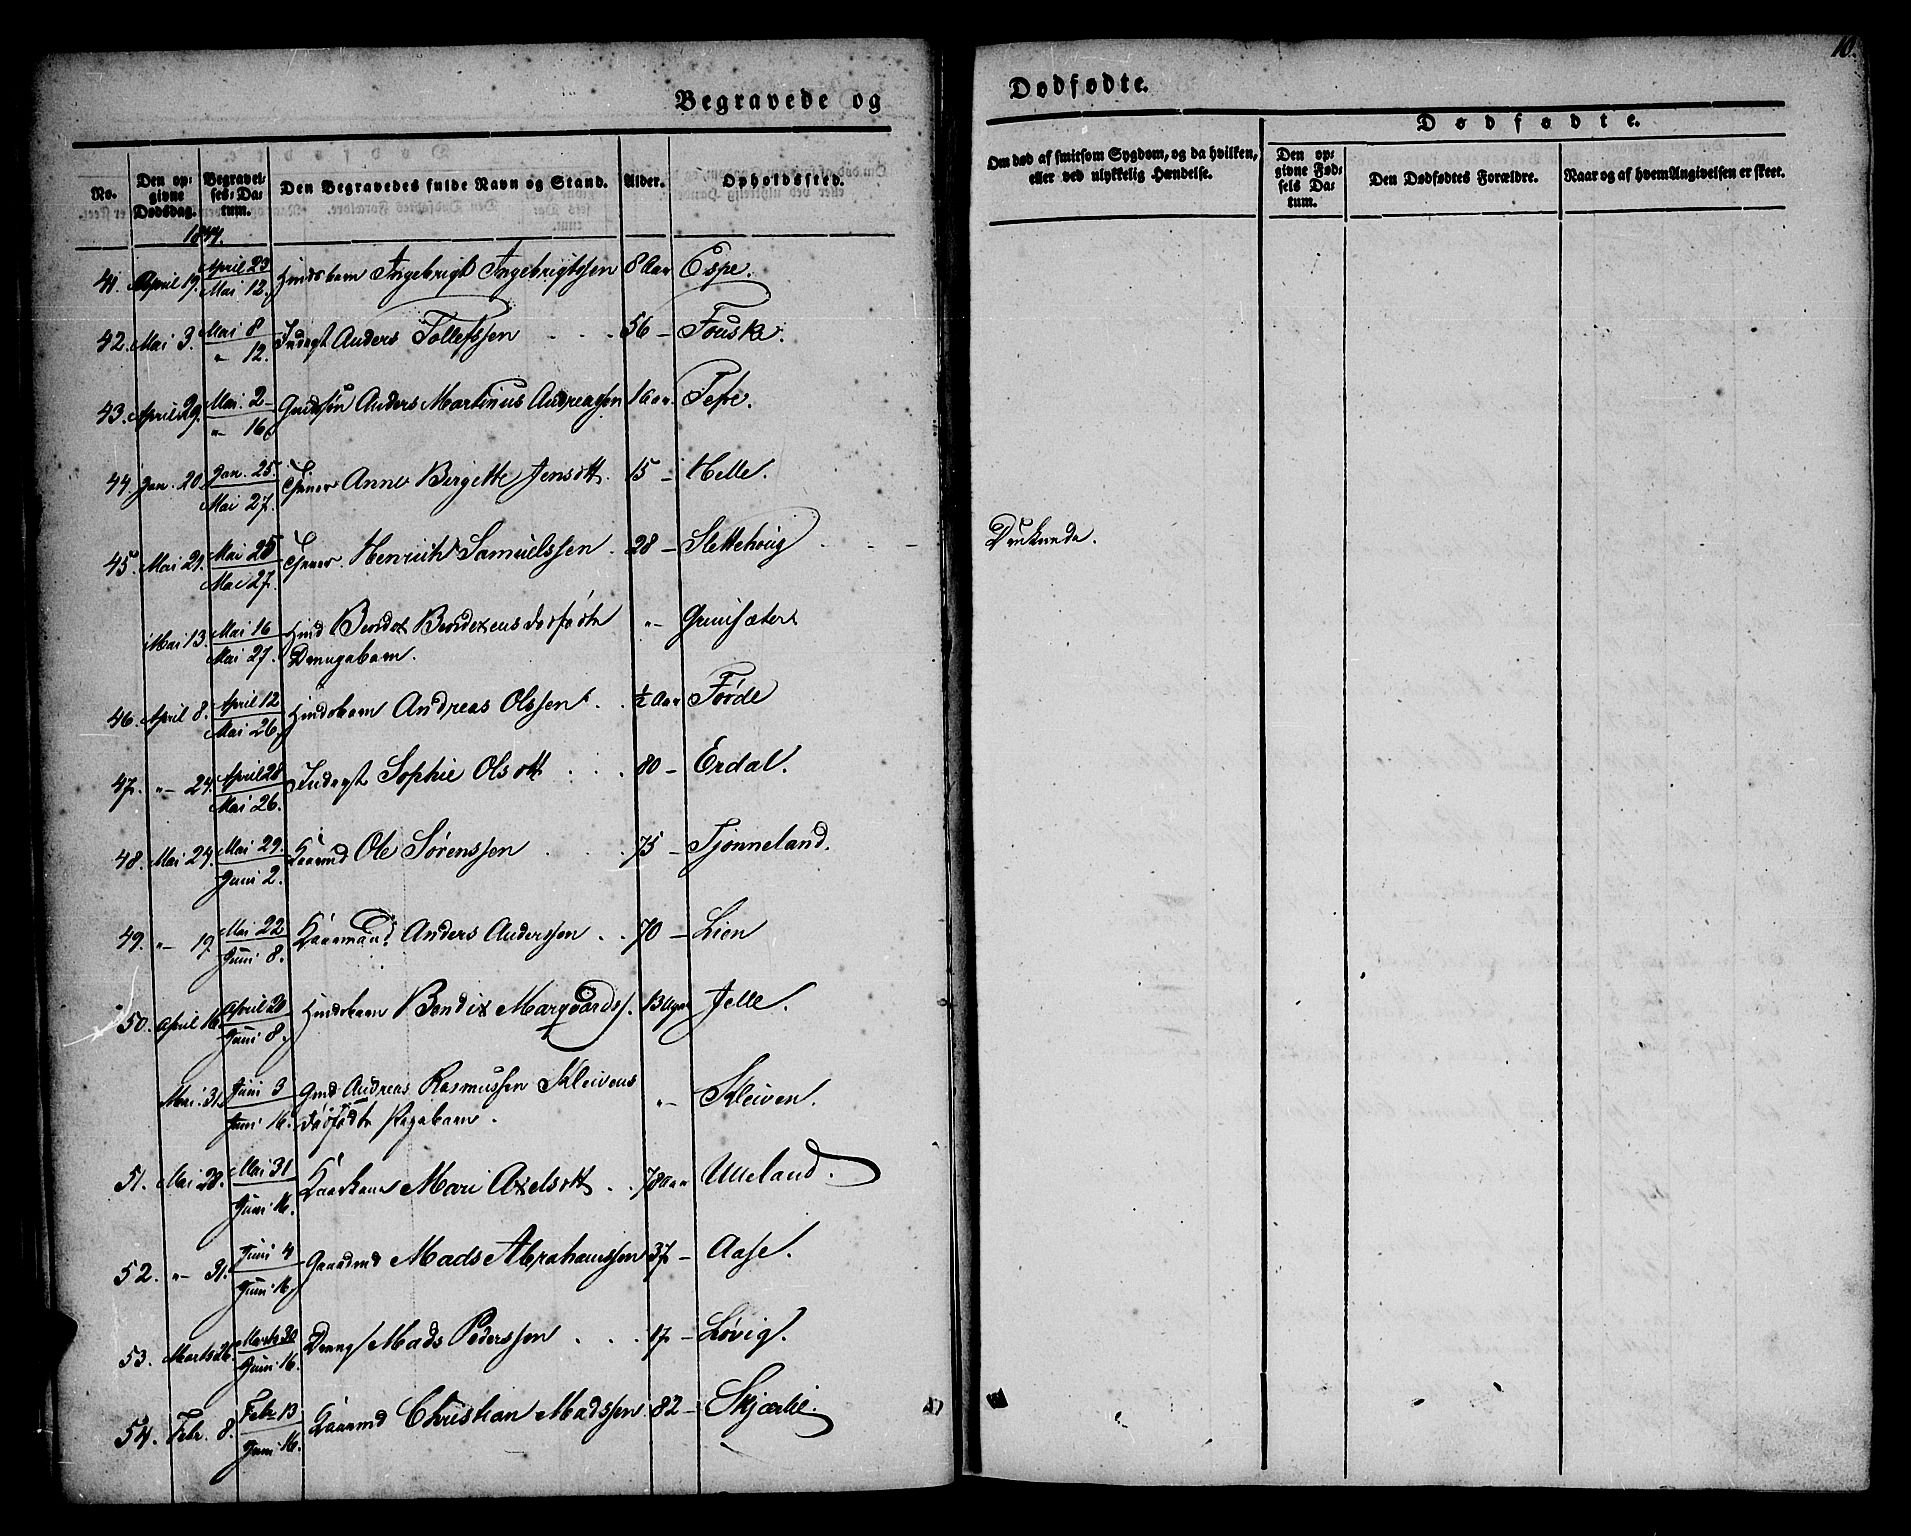 Begravede og
No. Den opgivne Dødsdag. Begravelses-Datum. Den Begravedes fulde Navn og Stand. Alder. Opholdssted.
1844.
41. April 19. April 23 Mai 12. Huusbarn Ingebrigt Ingebrigtssen 8 Aar Espe.
42. Mai 3. Mai 8 " 12. Inderst Anders Tollefssen 56 - Fouske.
43. April 29. Mai 2 - " 16 Anders Martinus Andreassen 1 Aar Tefre.
44. Jan. 20. Jan. 25 Mai 27. Tjener Anne Birgitte Jensdtt. 15 - Helle.
45. Mai 21. Mai 25 Mai 27. Tjener. Henrich Samuelssen. 28 - Slettehoug
Mai 13. Mai 16 Mai 27. Huusmd Bendix Bendixens dødfødte " Grimsæter
Drengebarn.
46. April 8. April 12 Mai 26. Huusbarn Andreas Olssen. ½ Aar Førde
47. " 24. April 28 Mai 26. Inderst Sophie Olsdtt 80 - Erdal.
48. Mai 24. Mai 29. Juni 2. Kaarmd Ole Sørenssen 75 - Tjønneland.
49. " 19. Mai 22 Juni 8. Kaarmand Anders Anderssen 70 - Lien
50. April 16. April 20 Juni 8. Huusbarn Bendix Marqvardss. 13 Uger Jelle.
Mai 31. Juni 3 Juni 16. Gmd Andreas Rasmussen Kleivens " Kleiven.
dødfødte Pigebarn.
51. Mai 28. Mai 31 Juni 16. Kaarkone Mari Axelsdtt 78 Aar Ulleland.
52. " 31. Juni 4 Juni 16. Gaardmd Mads Abrahamssen 37 - Aase.
53. Marts 26. Marts 30 Juni 16. Dreng Mads Pederssen 17 - Løvig.
54. Febr. 8. Febr 13 Juni 16. Kaarmd Christian Madssen 82 - Skjærlie.
10.
Dødfødte.
Om død af smitsom Sygdom, og da hvilken, eller ved ulykkelig Hændelse.
Dødfødte.
Den opgivne Fødsels Datum. Den Dødfødtes Forældre. Naar og af hvem Angivelsen er skeet.
Druknede.